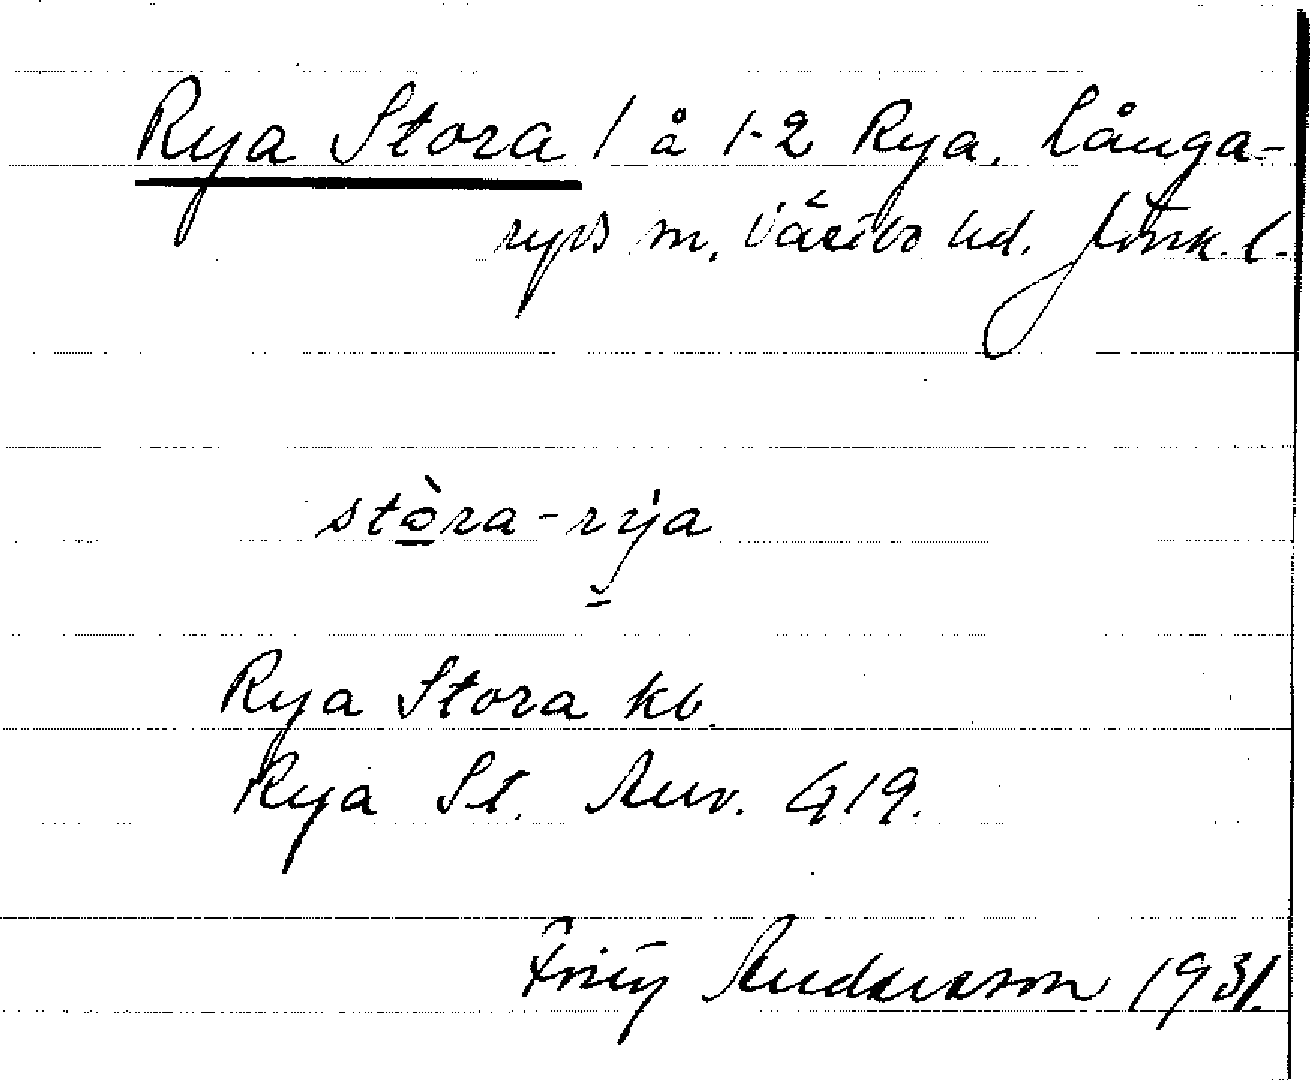 Rya Stora 1 å 1-2 Rya, Långa-
ryds sn, Västbo hd. Jönk. l.
stòra-rýja
Rya Stora kb.
Rya St. Hmv. 419.
Andersson 1931.